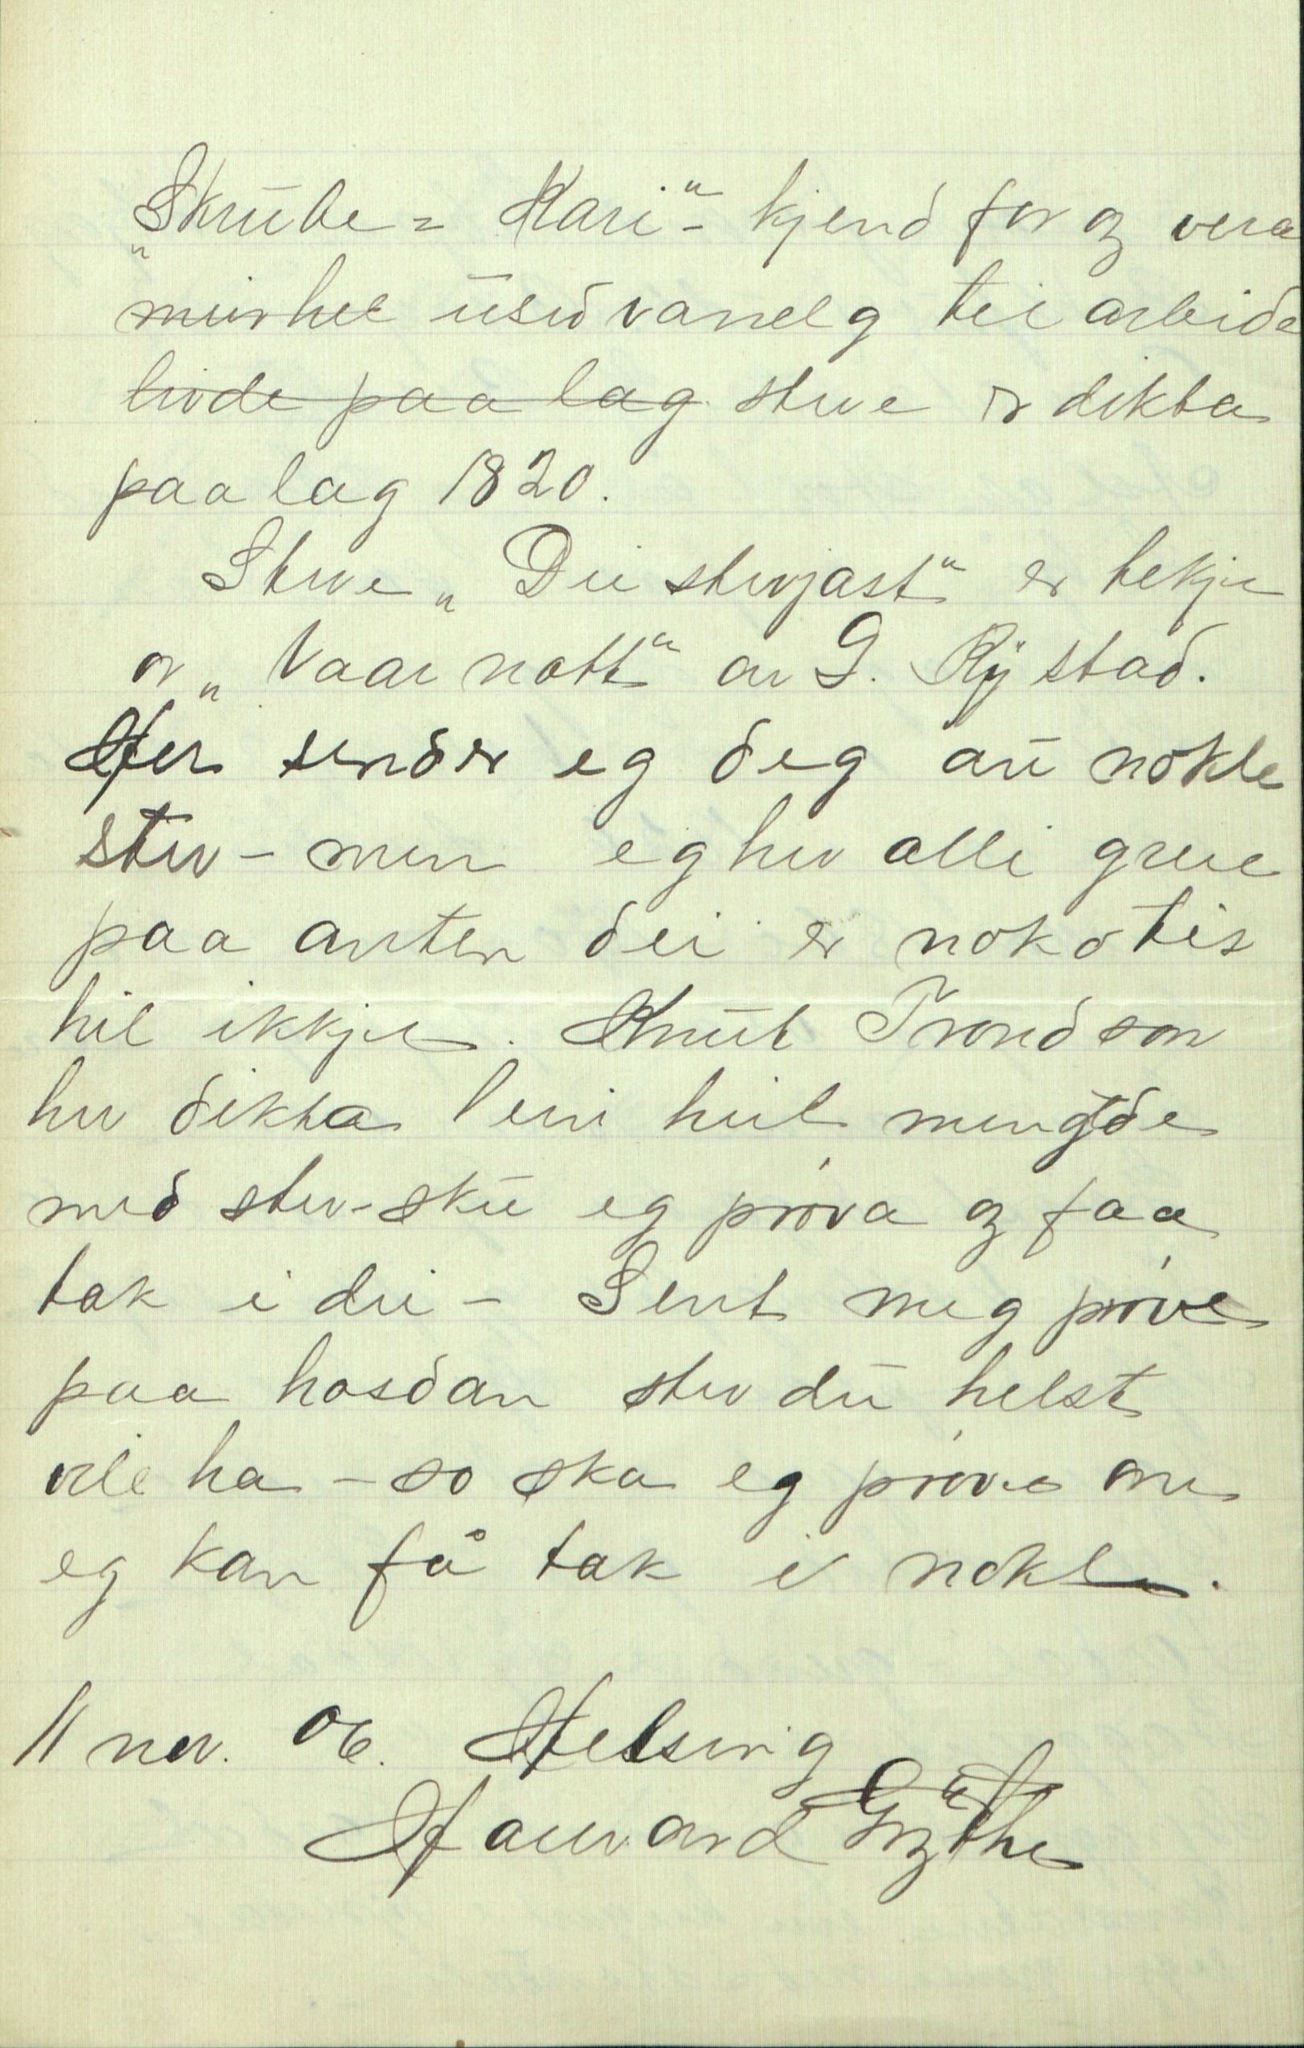 "Skrube = Kari" - kjend for og vera
usedvaneleg tei arbeide
livde paa lag stve er dikta
paa lag 1820.
Stve "Dei stvjast" er tekje
or "Vaar nott" av G. Rystad.
Her sender eg deg au nokle
stev - men eg hev alli greie
paa anten dei er noko tis
hil ikkje. Knut Trondson
hev dikta ein heil mengde
med stev - sku eg prøva og faa
tak i dei - Sent meg prøve
paa hosdan stev du helst
vile ha - so ska eg prøve om
eg kan få tak i nokle.
11 nov. 06. Helsing
Haavard Gythe